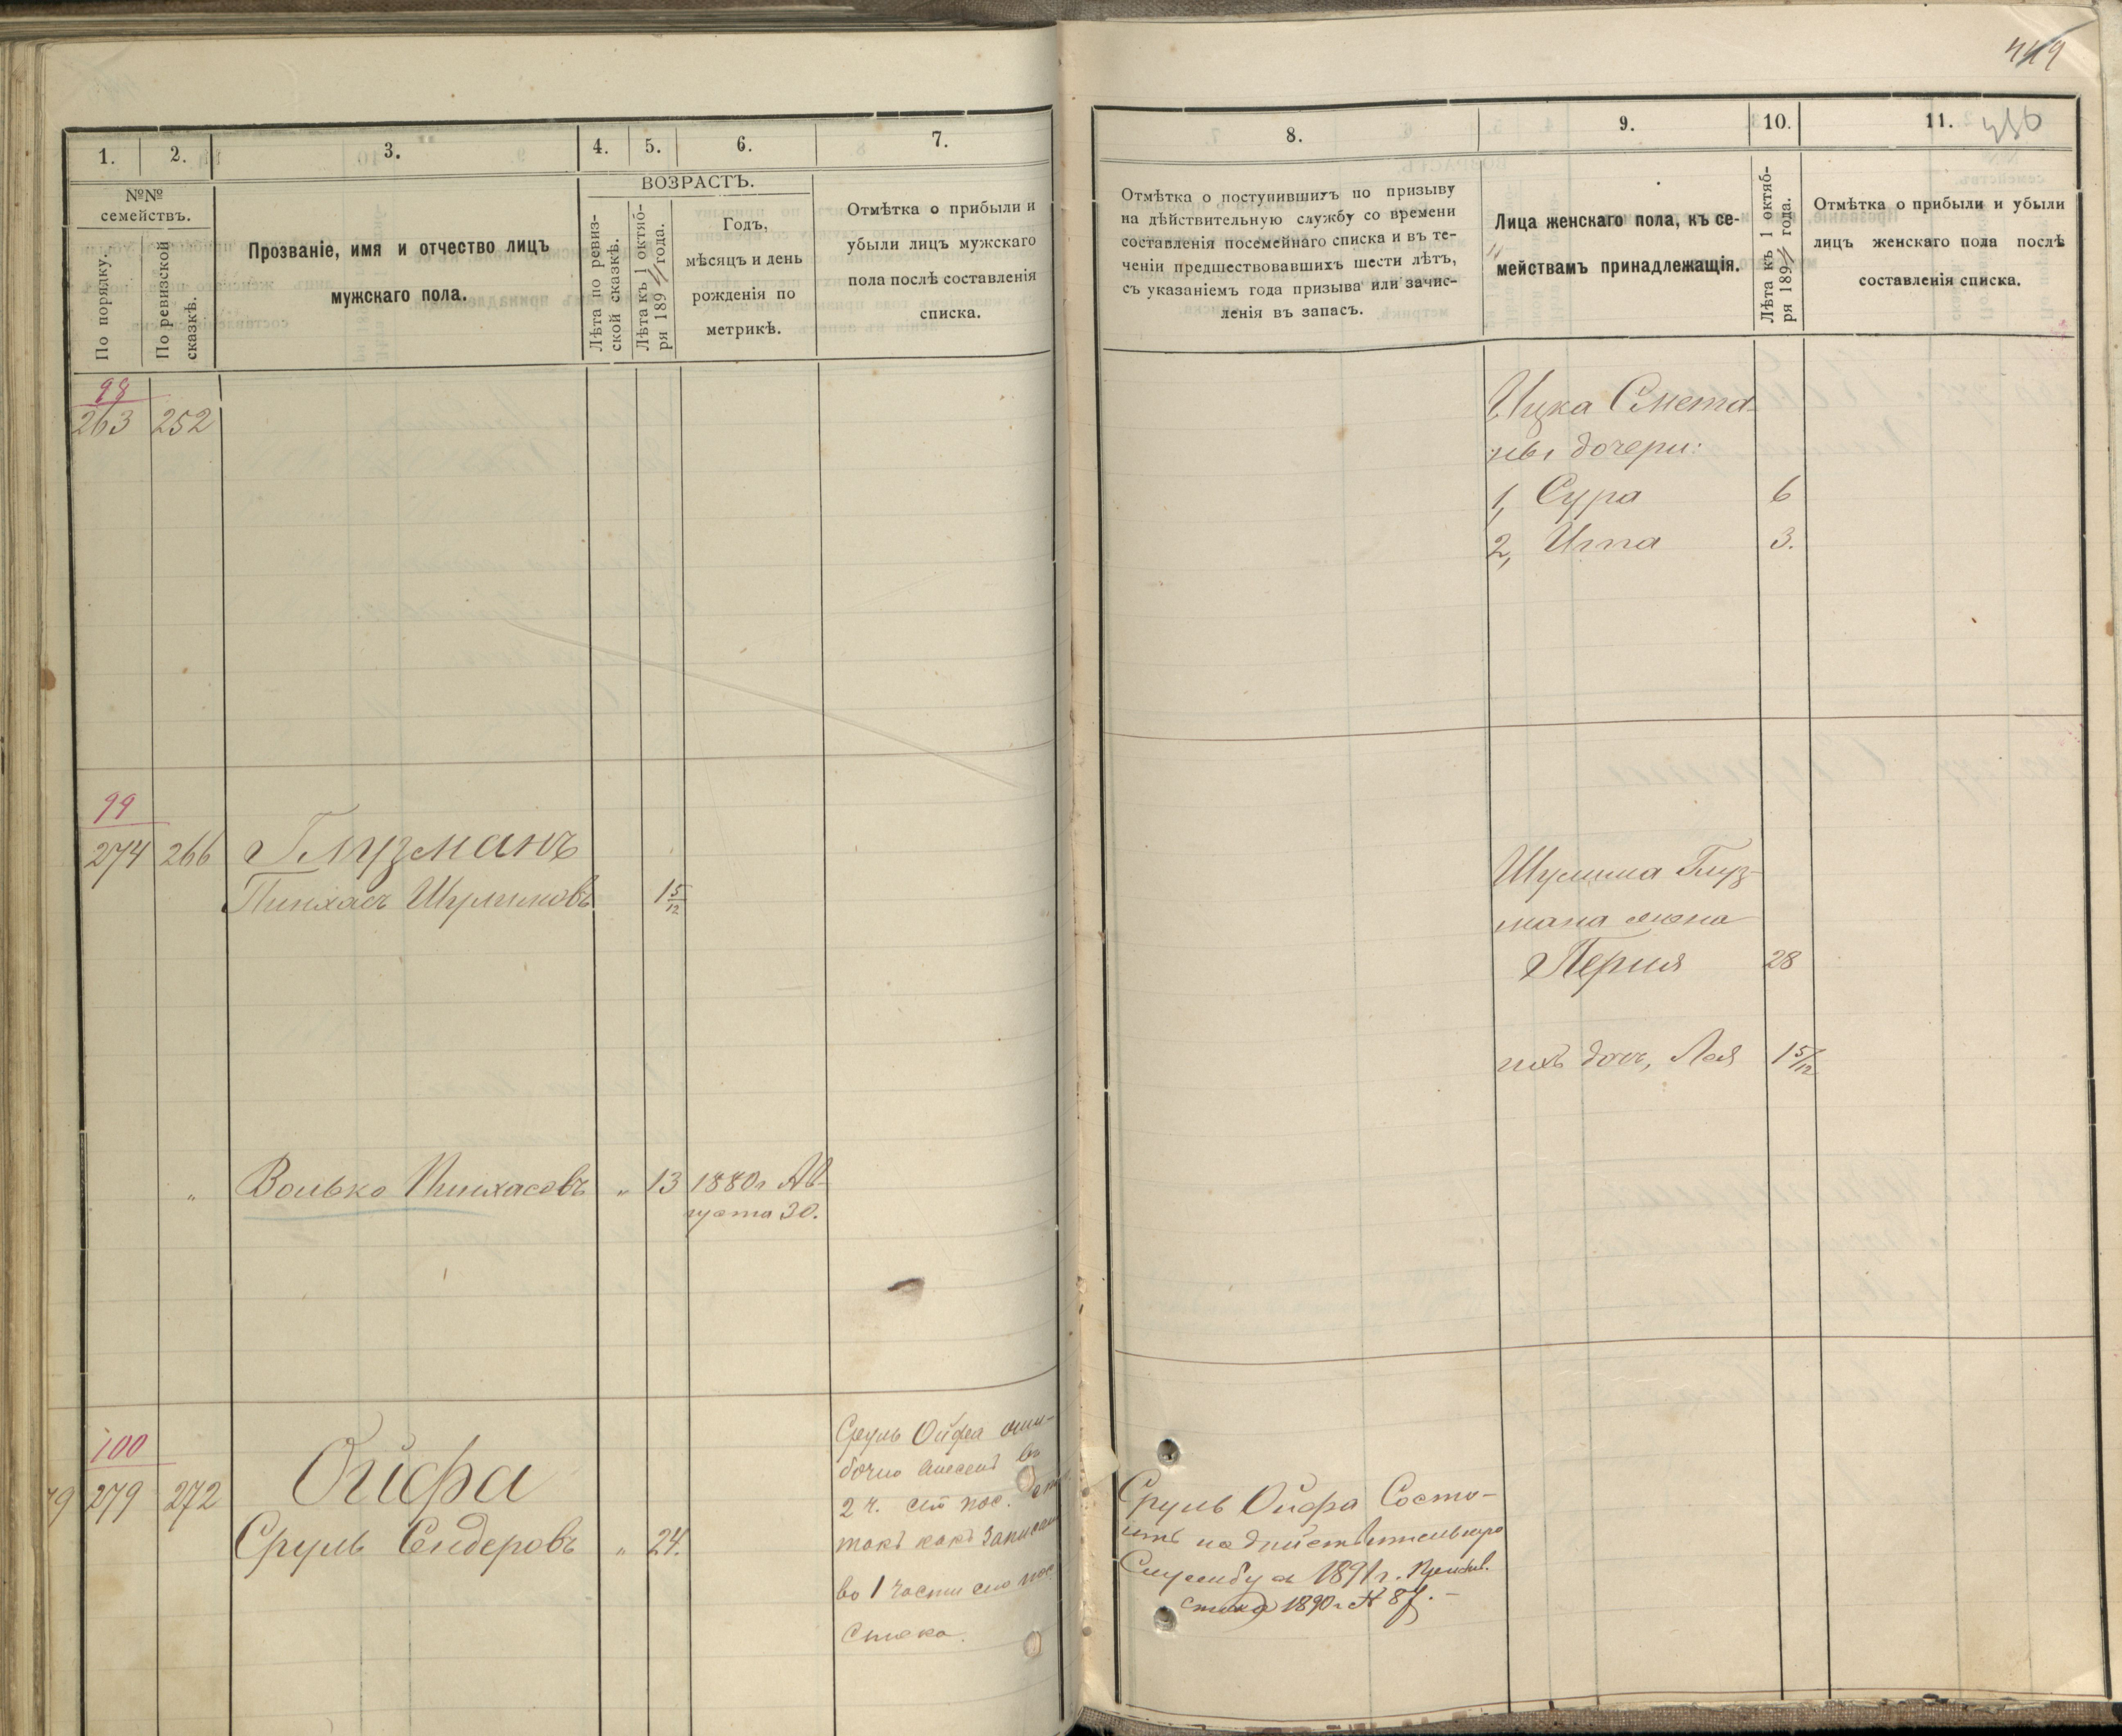 449
1.
2.
3.
4.
5.
6.
7.
№№
семействъ.
По порядку.
По ревизской
сказкѣ.
Прозваніе, имя и отчество лицъ
мужскаго пола.
ВОЗРАСТЪ.
Лѣта по ревиз-
ской сказкѣ.
Лѣта къ 1 октяб-
ря 189 года.
Годъ,
мѣсяцъ и день
рожденія по
метрикѣ.
Отмѣтка о прибыли и
убыли лицъ мужскаго
пола послѣ составленія
списка.
8.
9.
10.
11.
Отмѣтка о поступившихъ по призыву
на дѣйствительную службу со времени
составленія посемейнаго списка и въ те-
ченіи предшествовавшихъ шести лѣтъ,
съ указаніемъ года призыва или зачис-
ленія въ запасъ.
Лица женскаго пола, къ се-
мействамъ принадлежащія.
Лѣта къ 1 октяб-
ря 189 года.
Отмѣтка о прибыли и убыли
лицъ женскаго пола послѣ
составленія списка.
98
263 252
Ицка Смета-
ны дочери:
1, Сура 6
2, Ита 3.
99
274 266 Глузманъ
Пинхасъ Шулимовъ 1 5/12
Шулима Глуз-
мана жена
Перля 28
ихъ дочь, Лея 1 5/12
" Волько Пинхасовъ " 13 1880 г Ав-
густа 30.
100
279 272 Ойфа
Сруль Сендеровъ " 24.
Сруль Ойфа оши-
бочно внесенъ въ
2 ч. сего пос.
такъ какъ записан
во 1 части сего пос.
Списка.
Сруль Ойфа Состо-
итъ на дѣйствительную
Службу в 1891 г. Призыв.
списка 1890 г № 87.